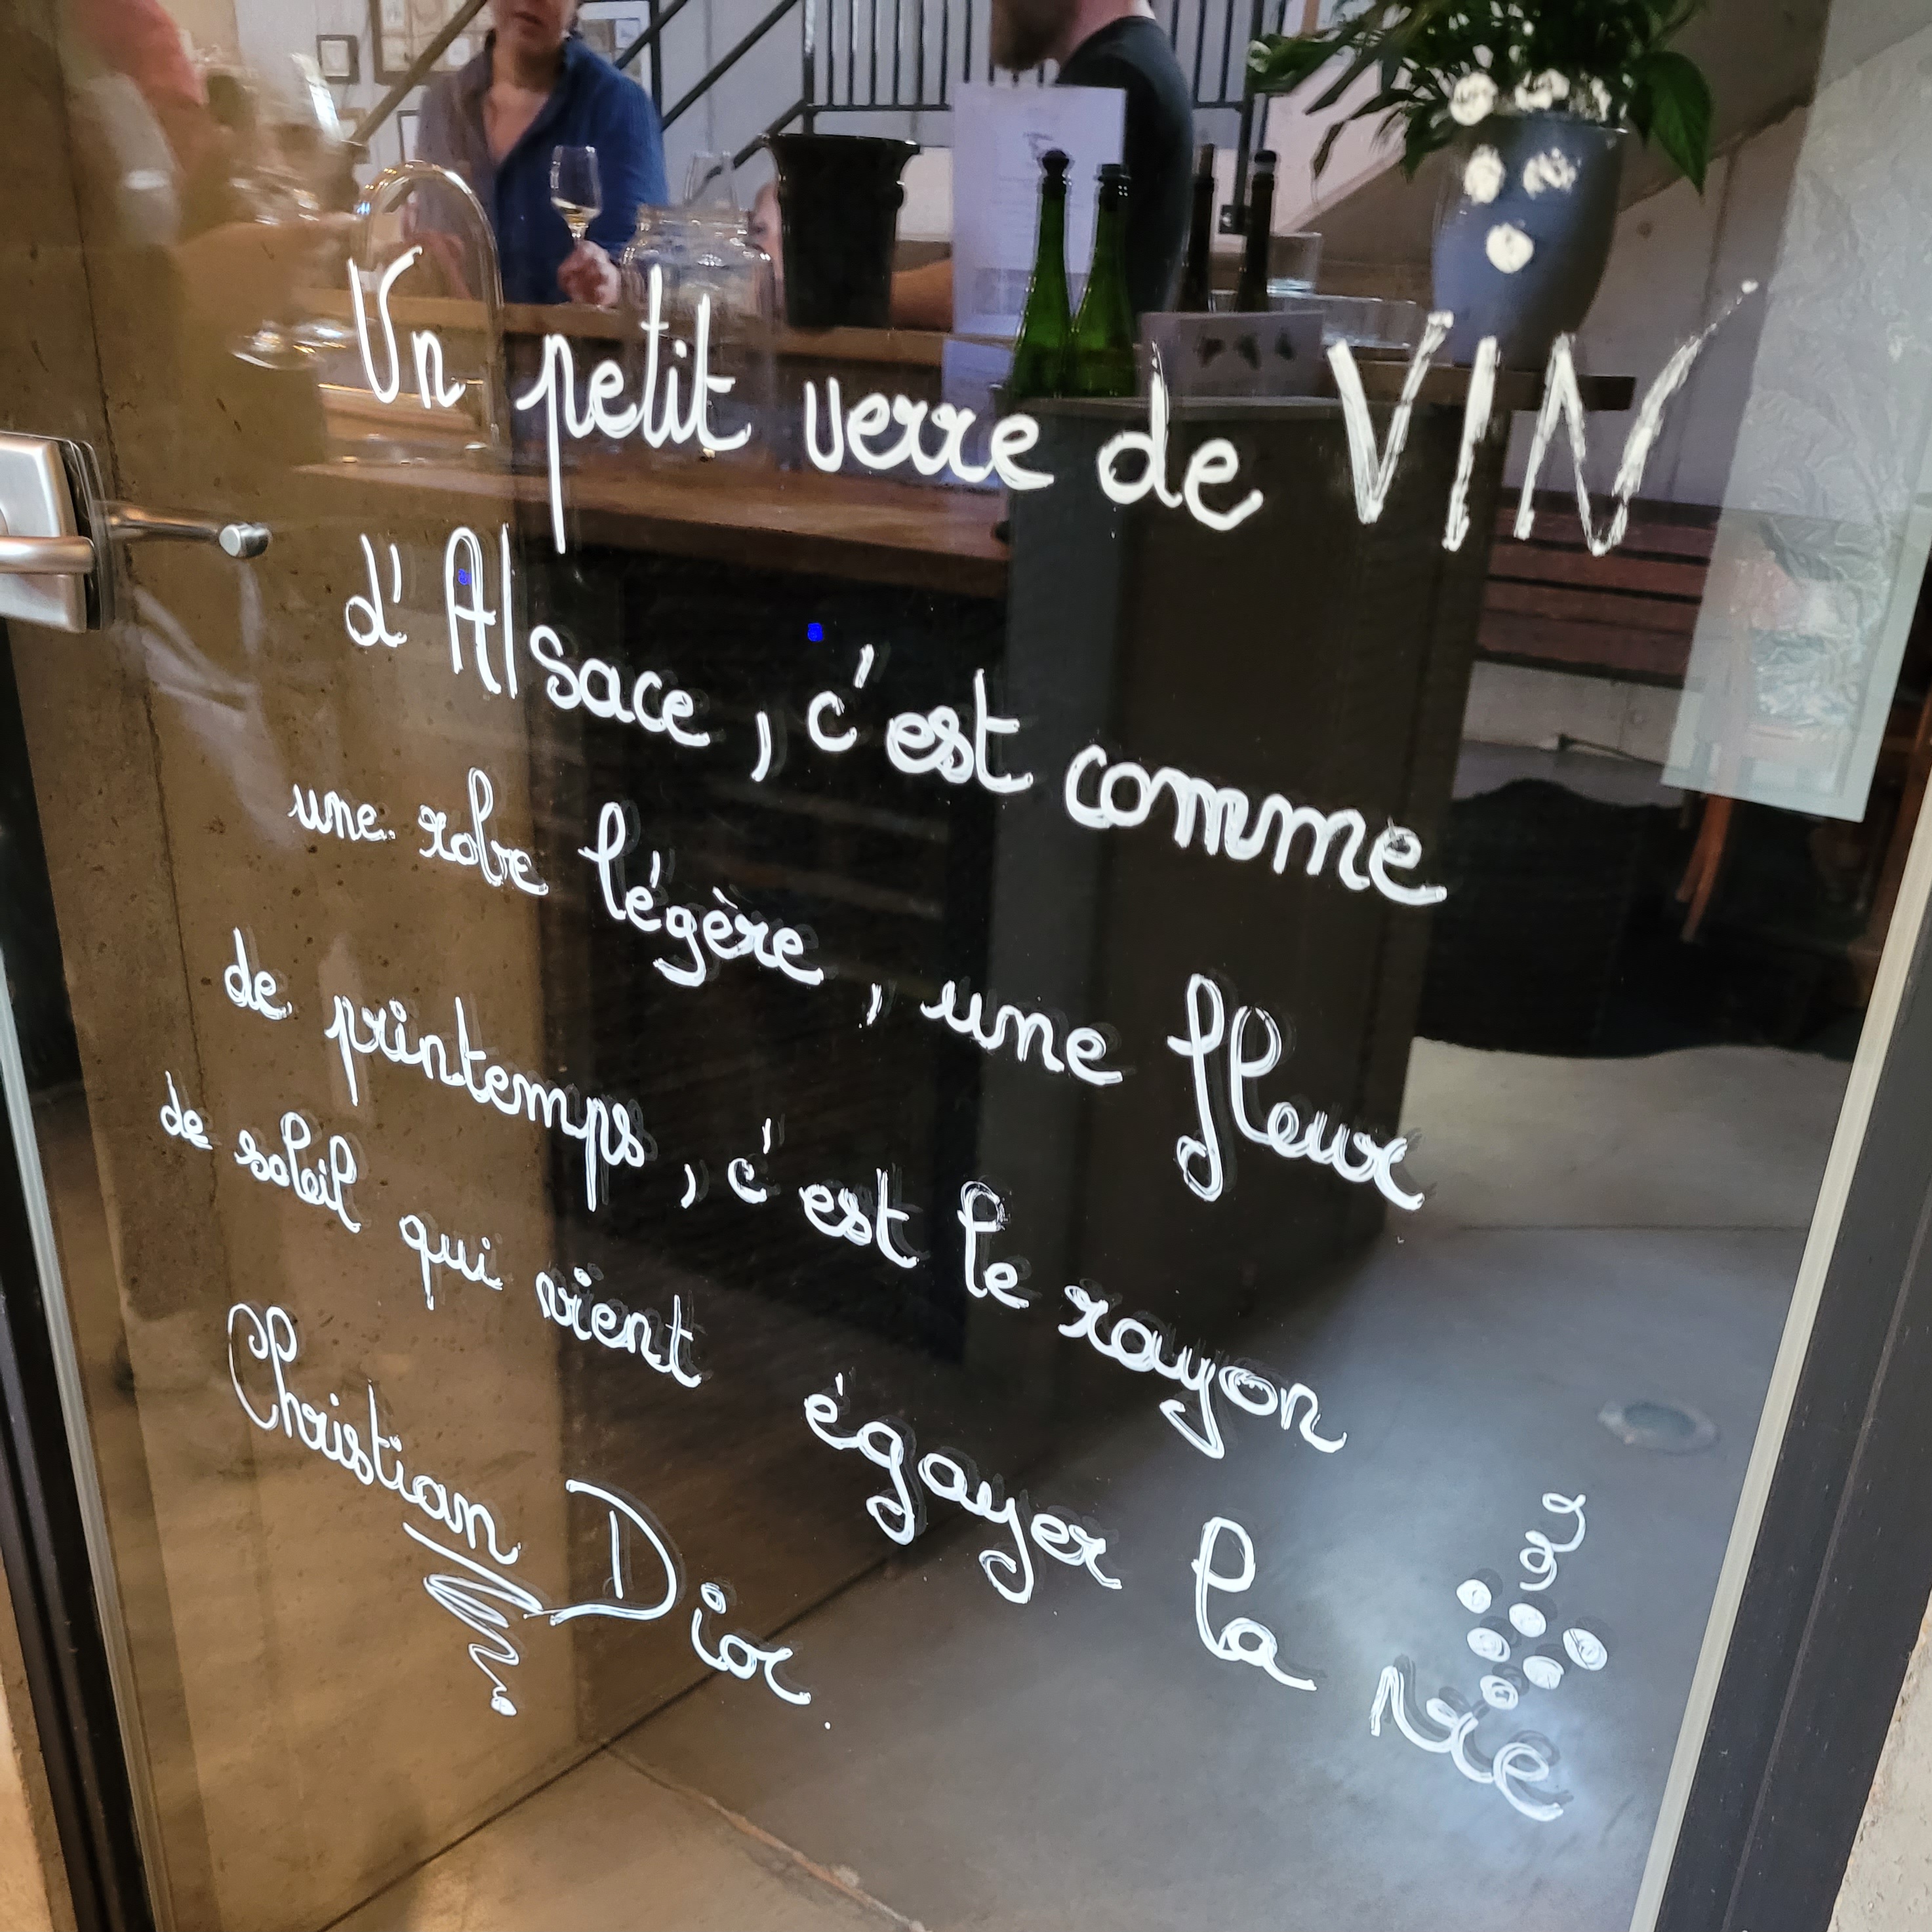 Un petit verre de VIN
d'Alsace, c'est comme
une robe légère, une fleur
de printemps, c'est le rayon
de soleil qui vient égayer la vie
Christian Dior.